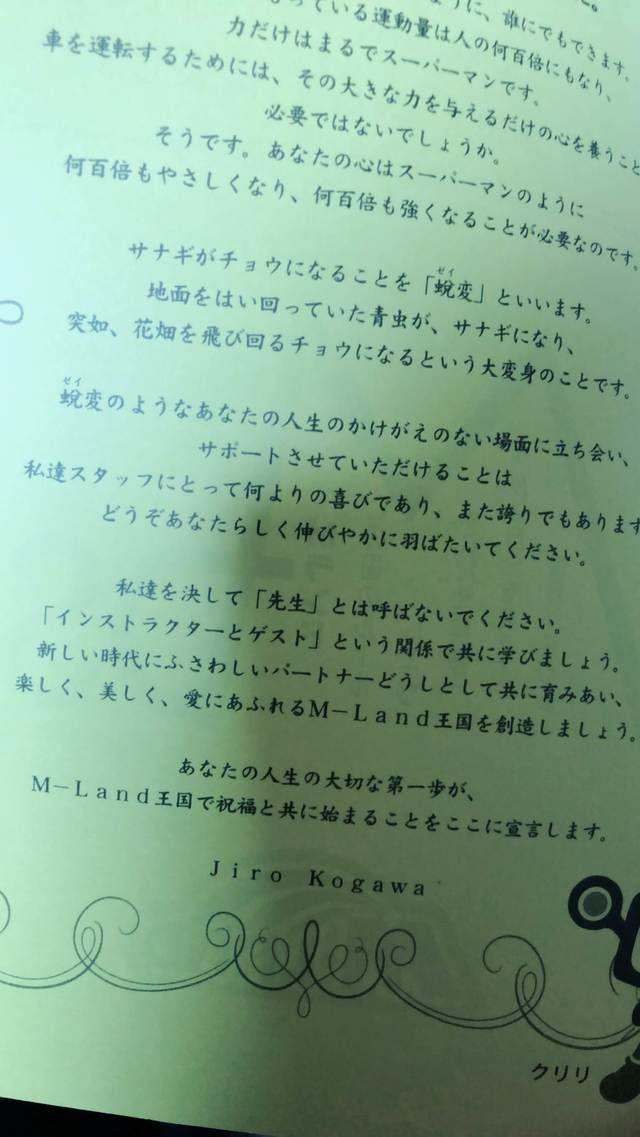 ように、誰にでもできます。
っている運動量は人の何百倍にもなり、
力だけはまるでスーパーマンです。
車を運転するためには、その大きな力を与えるだけの心を養うこと
必要ではないでしょうか。
そうです。あなたの心はスーパーマンのように
何百倍もやさしくなり、何百倍も強くなることが必要なのです。
サナギがチョウになることを「蛻変」といいます。
ゼイ
地面をはい回っていた青虫が、サナギになり、
突如、花畑を飛び回るチョウになるという大変身のことです。
ゼイ
蛻変のようなあなたの人生のかけがえのない場面に立ち会い、
サポートさせていただけることは
私達スタッフにとって何よりの喜びであり、また誇りでもあります
どうぞあなたらしく伸びやかに羽ばたいてください。
私達を決して「先生」とは呼ばないでください。
「インストラクターとゲスト」という関係で共に学びましょう。
新しい時代にふさわしいパートナーどうしとして共に育みあい、
楽しく、美しく、愛にあふれるM－Land王国を創造しましょう。
あなたの人生の大切な第一歩が、
M－Land王国で祝福と共に始まることをここに宣言します。
Jiro Kogawa
クリリ